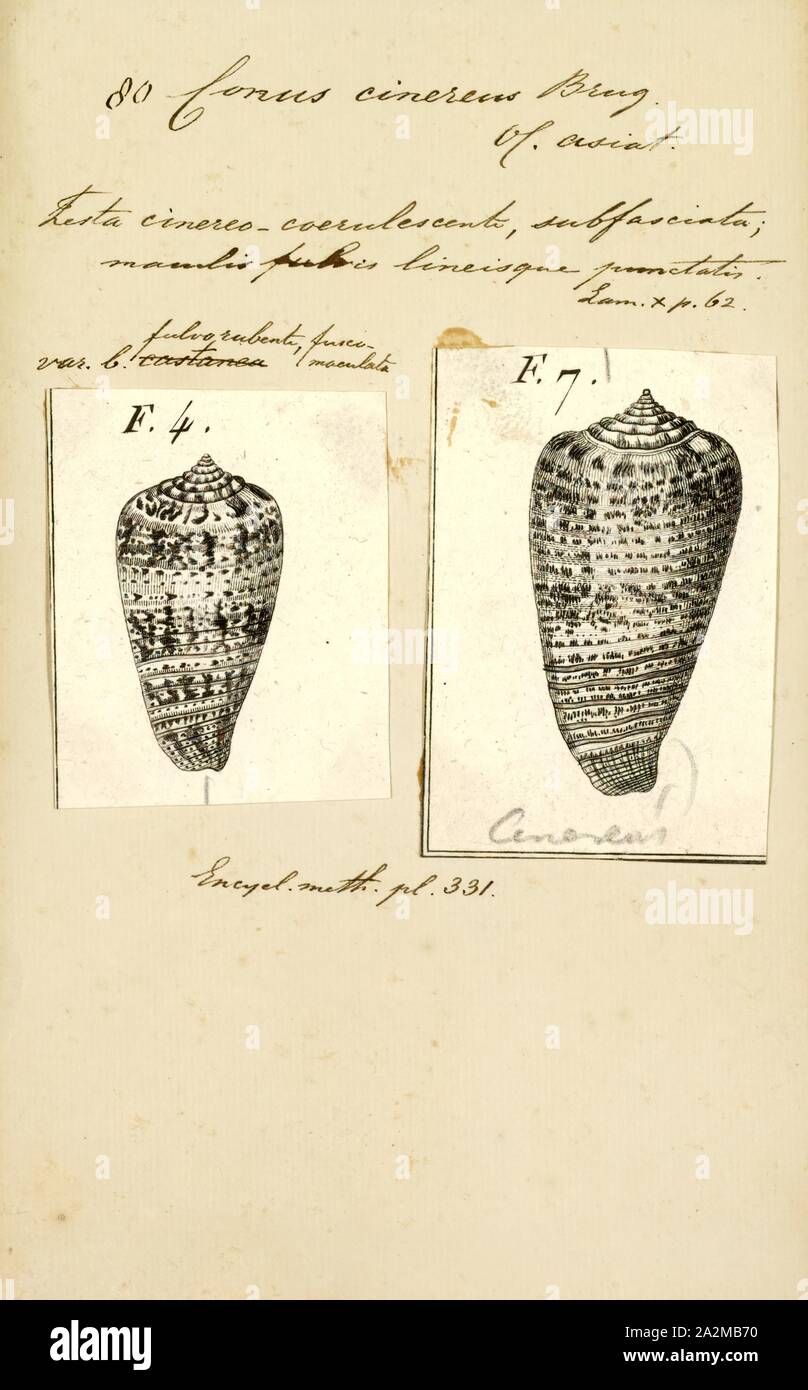 80 Conus cinereus Brug.
Oc. asiat.
Testa cinereo-coerulescente, subfasciata;
maculis fulvis lineisque punctatis.
Lam. x p. 62.
fulvorubente, fusco-
var. b. castanea maculata
F. 4.
F. 7.
Cinereus
Encycl. meth. pl. 331.
alamy
Image ID: A2MB70
www.alamy.com